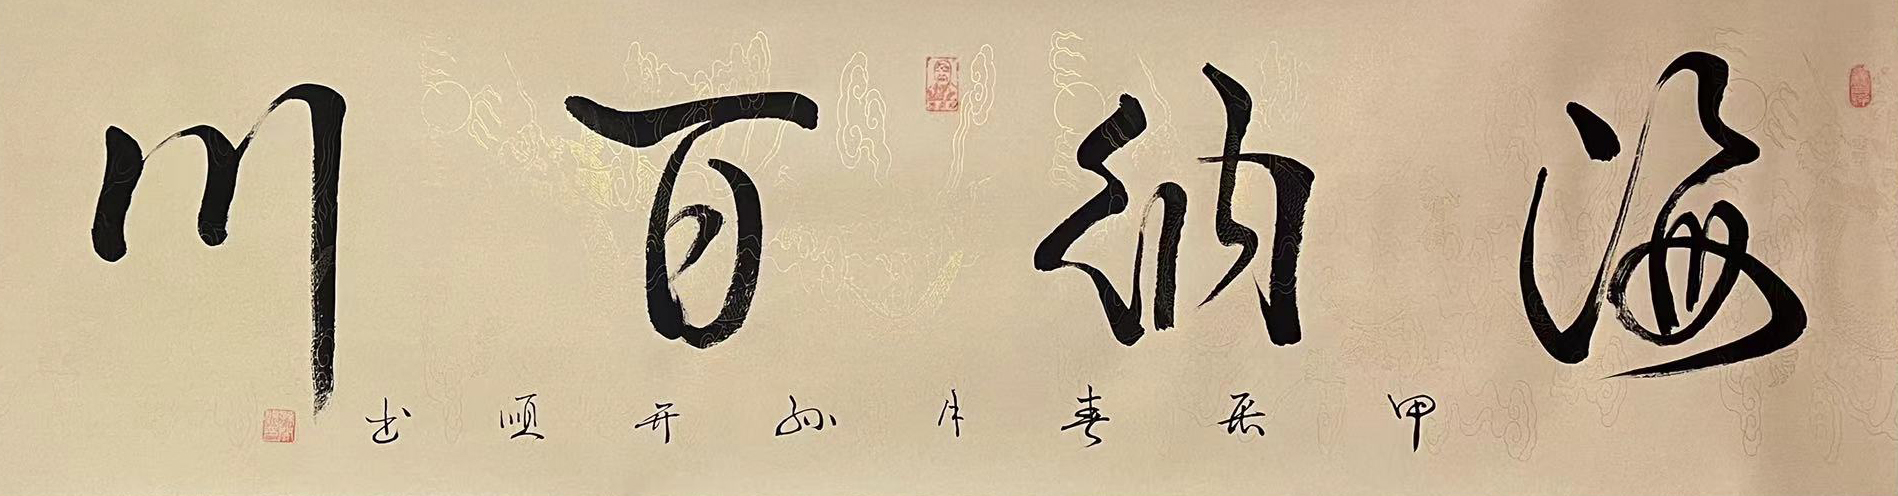 海纳百川
甲辰春月孙开顺书